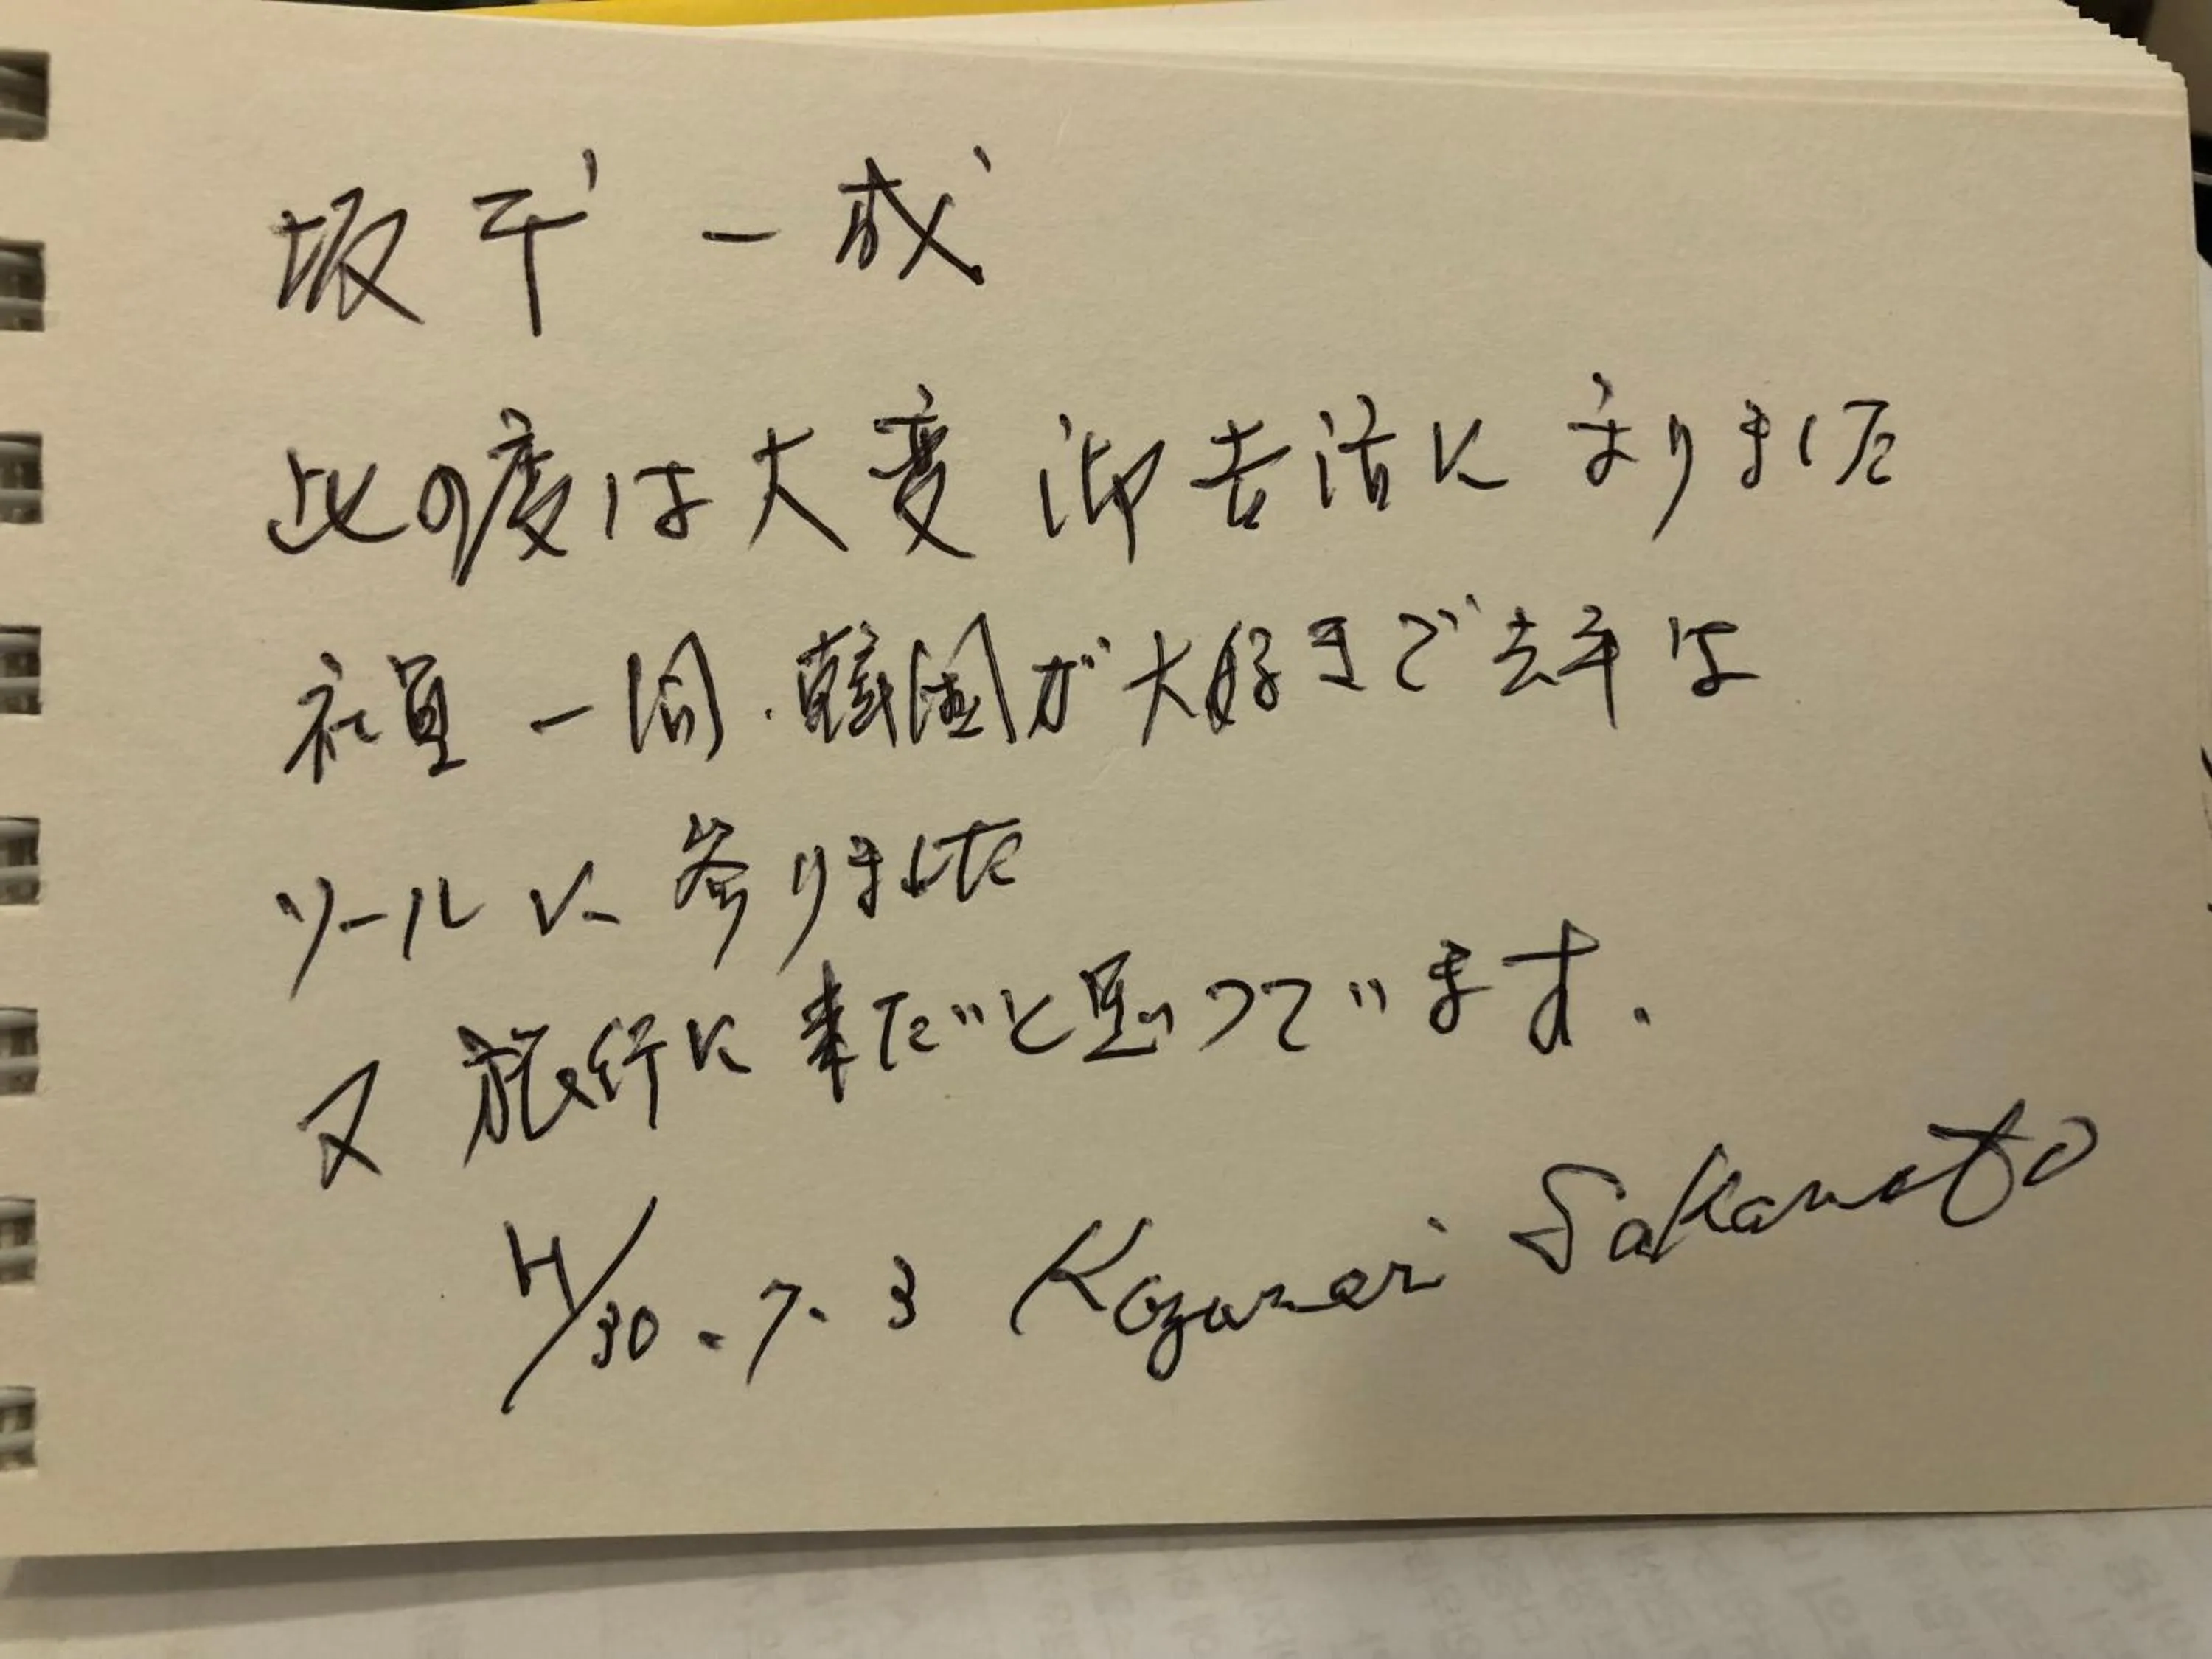 坂本一成
此の度は大変御世話になりました
社員一同.韓国が大好きで去年は
ソールに参りました
又旅行に来たいと思っています.
H/30.7.3 Kazunari Sakamoto